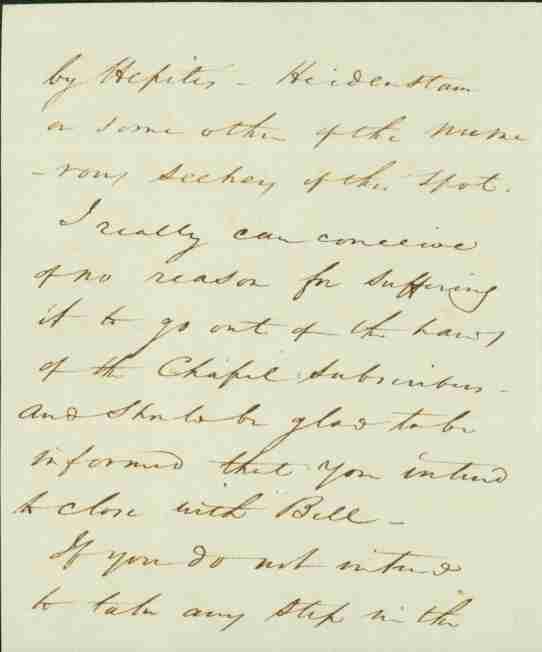 by Hepites - Heidenstam
or some other of the nume
-rous seekers of the spot.
I really can conceive
of no reason for suffering
it to go out of the hands
of the Chapel Subscribers -
and should be glad to be
informed that you intend
to close with Bell -
If you do not intend
to take any step in the